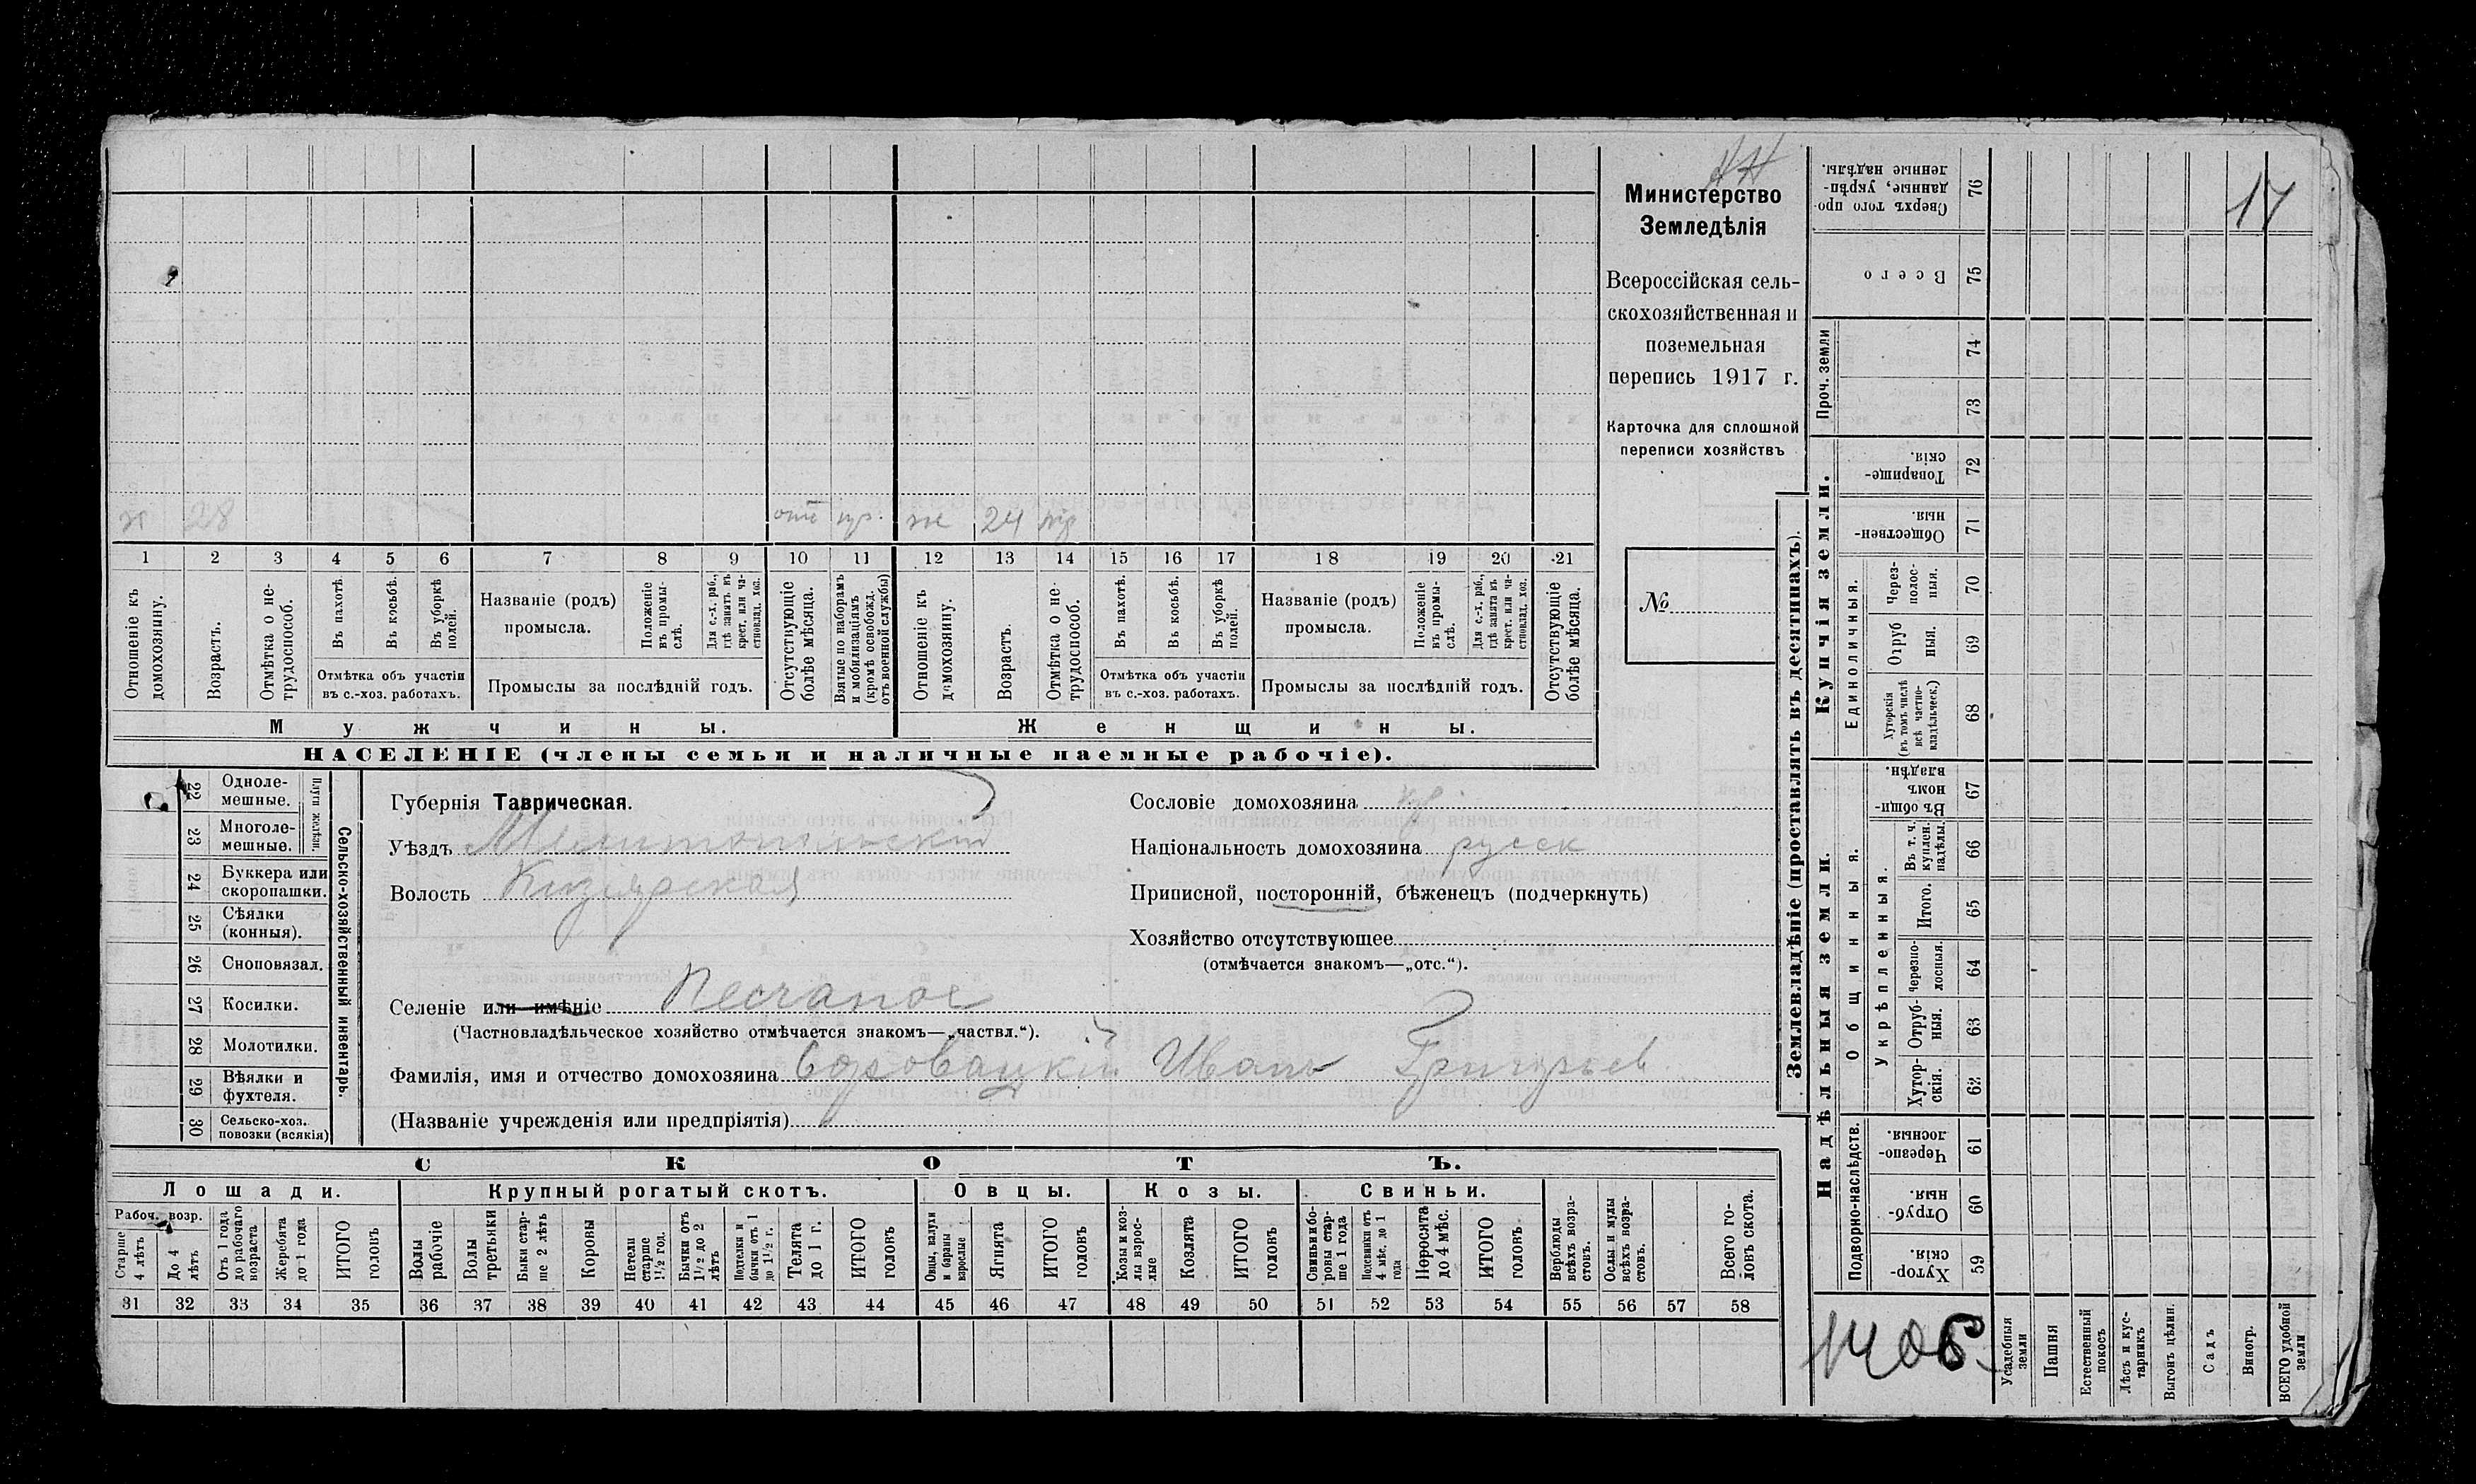 х 28 отс нр. же 24 нр
1 2 3 4 5 6 7 8 9 10 11 12 13 14 15 16 17 18 19 20 21
Отношеніе къ домохозяину.
Возрастъ.
Отмѣтка о нетрудоспособ.
Въ пахотѣ.
Въ косьбѣ.
Въ уборкѣ полей.
Отмѣтка объ участіи въ с.-хоз. работахъ.
Названіе (родъ) промысла.
Положеніе въ промыслѣ.
Для с.-х. раб., гдѣ занятъ въ крест. или частновлад. хоз.
Промыслы за послѣдній годъ.
Отсутствующіе болѣе мѣсяца.
Взятые по наборамъ и мобилизаціямъ (кромѣ освобожд. отъ военной службы)
Отношеніе къ домохозяину.
Возрастъ.
Отмѣтка о нетрудоспособ.
Въ пахотѣ.
Въ косьбѣ.
Въ уборкѣ полей.
Отмѣтка объ участіи въ с.-хоз. работахъ.
Названіе (родъ) промысла.
Положеніе въ промыслѣ.
Для с.-х. раб., гдѣ занята въ крест. или частновлад. хоз.
Промыслы за послѣдній годъ.
Отсутствующіе болѣе мѣсяца.
Мужчины.
Женщины.
НАСЕЛЕНІЕ (члены семьи и наличные наемные рабочіе).
Министерство
Земледѣлія
Всероссійская сель-
скохозяйственная и
поземельная
перепись 1917 г.
Карточка для сплошной
переписи хозяйствъ
№
22 Одноле-мешные.
23 Многоле-мешные.
Плуги желѣзн.
24 Буккера или скоропашки.
25 Сѣялки (конныя).
26 Сноповязал.
27 Косилки.
28 Молотилки.
29 Вѣялки и фухтеля.
30 Сельско-хоз. повозки (всякія)
Сельско-хозяйственный инвентарь.
Губернія Таврическая.
Уѣздъ Мелитопольскій
Волость Кизіярская
Селеніе или имѣніе Песчаное
(Частновладѣльческое хозяйство отмѣчается знакомъ—„частвл.“).
Фамилія, имя и отчество домохозяина Иванъ Григорьев
(Названіе учрежденія или предпріятія)
Сословіе домохозяина кр.
Національность домохозяина русск
Приписной, посторонній, бѣженецъ (подчеркнуть)
Хозяйство отсутствующее
(отмѣчается знакомъ—„отс.“).
СКОТЪ.
Лошади. Крупный рогатый скотъ. Овцы. Козы. Свиньи.
Рабоч. возр.
Старше 4 лѣтъ
До 4 лѣтъ
Отъ 1 года до рабочаго возраста
Жеребята до 1 года
ИТОГО головъ
Волы рабочіе
Волы третьяки
Быки старше 2 лѣтъ
Коровы
Нетели старше 1 1/2 год.
Бычки отъ 1 1/2 до 2 лѣтъ
Подтелки и бычки отъ 1 до 1 1/2 г.
Телята до 1 г.
ИТОГО головъ
Овцы, валухи и бараны взрослые
Ягнята
ИТОГО головъ
Козы и козлы взрослые
Козлята
ИТОГО головъ
Свиньи и боровы старше 1 года
Подсвинки отъ 4 мѣс. до 1 года
Поросята до 4 мѣс.
ИТОГО головъ
Верблюды всѣхъ возрастовъ.
Ослы и мулы всѣхъ возрастовъ.
Всего головъ скота.
31 32 33 34 35 36 37 38 39 40 41 42 43 44 45 46 47 48 49 50 51 52 53 54 55 56 57 58
Землевладѣніе (проставлять въ десятинахъ).
Купчія земли.
Надѣльныя земли.
Сверхъ того проданные, укрѣпленные надѣлы. 76
Всего 75
Проч. земли
74
73
Товарищескія. 72
Общественныя. 71
Единоличныя.
Черезполосныя. 70
Отрубныя. 69
Хуторскія (въ томъ числѣ всѣ частновладѣльческ.) 68
Общинныя.
Въ общинномъ владѣн. 67
Укрѣпленныя.
Въ т. ч. куплен. надѣлы. 66
Итого. 65
Черезполосныя. 64
Отрубныя. 63
Хуторскія. 62
Подворно-наслѣдств.
Черезполосныя. 61
Отрубныя 60
Хуторскія. 59
17
1406
Усадебныя земли
Пашня
Естественный покосъ
Лѣсъ и кустарникъ
Выгонъ цѣлин.
Садъ
Виногр.
ВСЕГО удобной земли